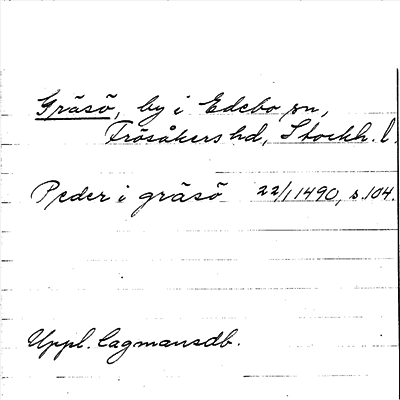 Gräsö, by i Edebo sn,
Frösåkers hd, Stockh. l.
Peder i gräsö 22/1 1490, s. 104.
Uppl. lagmansdb.